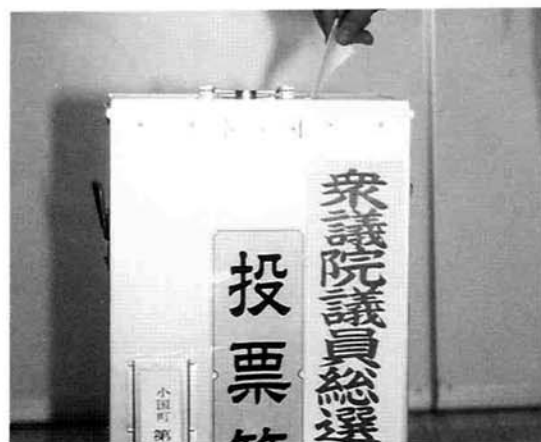 衆議院議員総選
投票
小国町
第